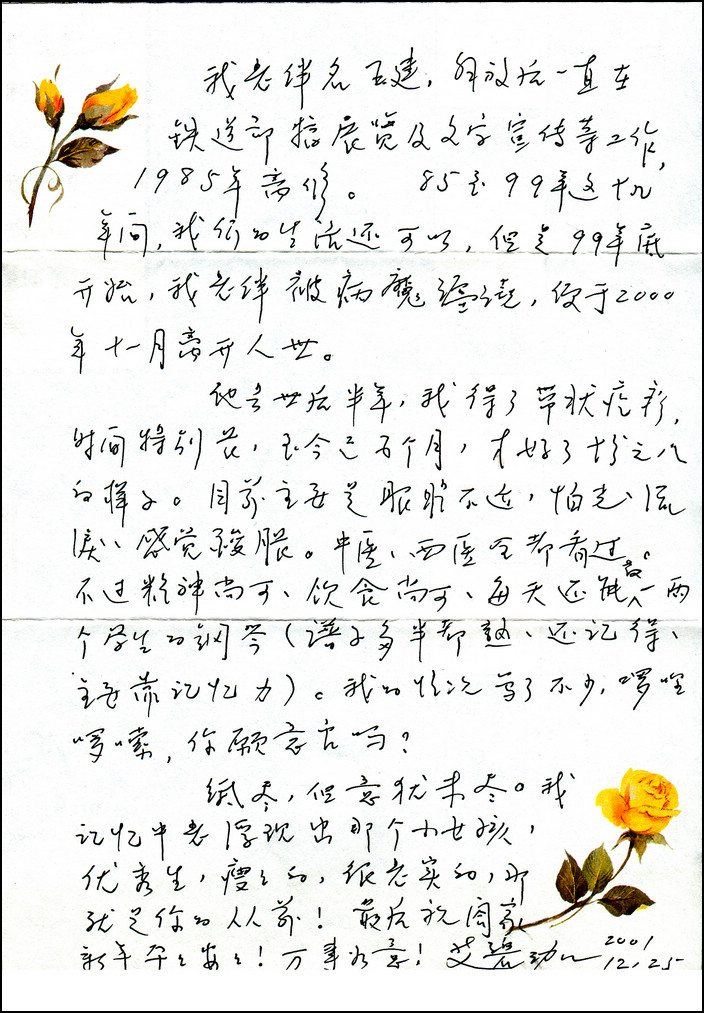 我老伴名王建，解放后一直在
铁道部搞展览及文字宣传等工作，
1985年离休。 85至99年这十几
年间，我们的生活还可以，但是99年底
开始，我老伴被病魔缠绕，便于2000
年十一月离开人世。
他去世后半年，我得了带状疱疹，
时间特别长，至今已五个月，才好了十分之八
的样子。目前主要是眼睛不适，怕光、流
泪、感觉酸胀。中医、西医全都看过。
不过精神尚可、饮食尚可、每天还能教一两
个学生的钢琴（谱子多半都熟、还记得、
主要靠记忆力）。我的情况写了不少，啰哩
啰嗦，你愿意看吗？
纸尽，但意犹未尽。我
记忆中老浮现出那个小女孩，
优秀生，瘦瘦的，很老实的，那
就是你的从前！最后祝阖家
新年平平安安！万事如意！艾碧珈 2001
12.25